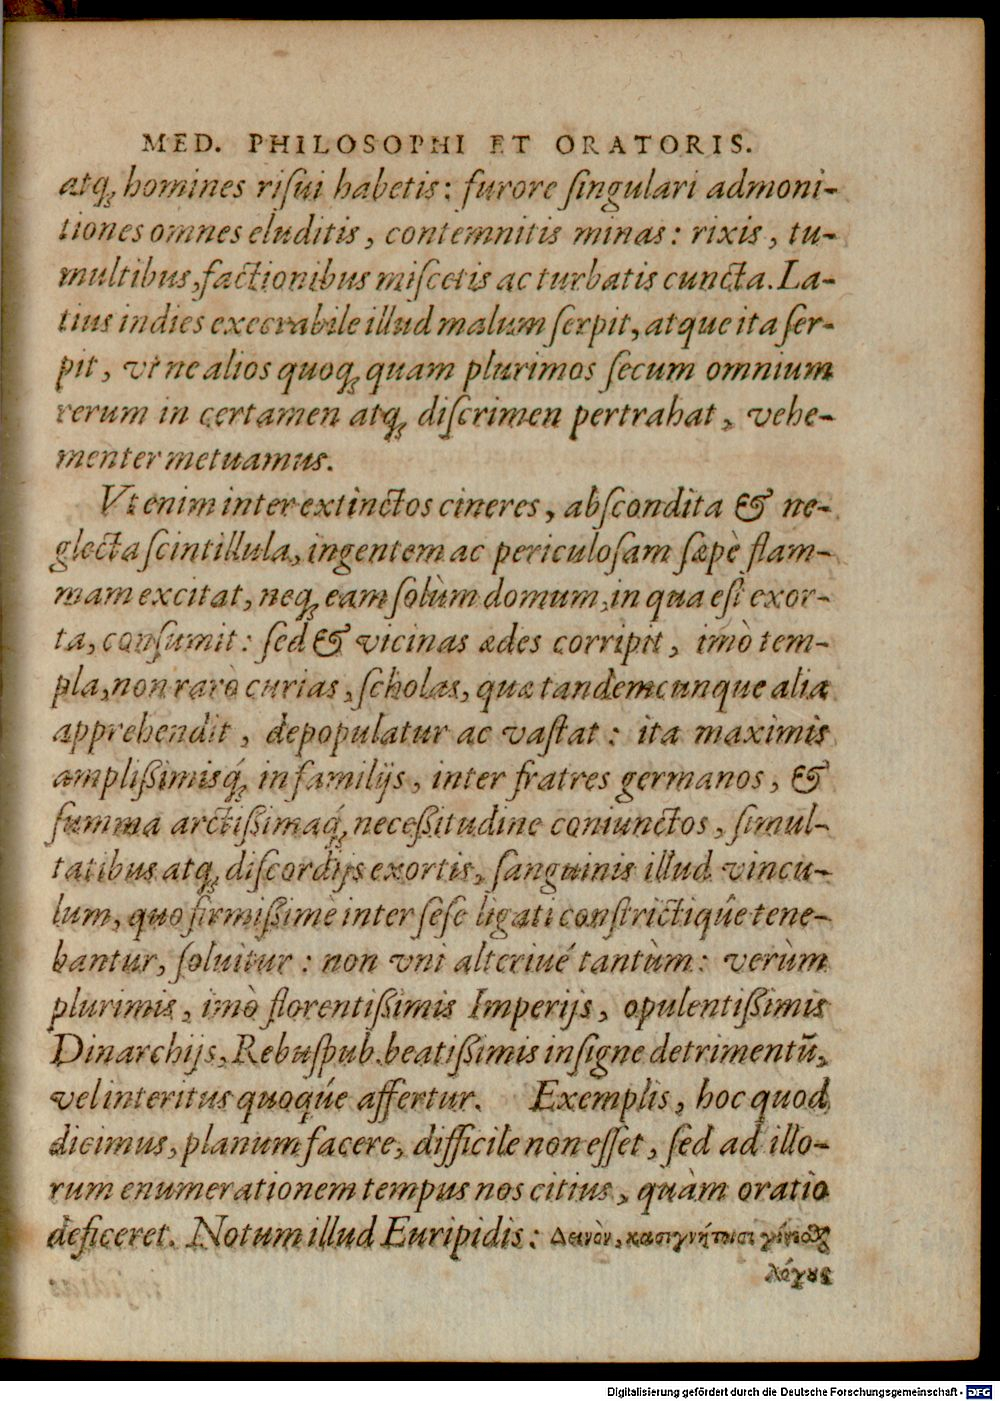 MED. PHILOSOPHI ET ORATORIS.
atq́; homines riſui habetis: furore ſingulari admoni-
tiones omnes eluditis, contemnitis minas: rixis, tu-
multibus, factionibus miſcetis ac turbatis cuncta. La-
tius indies execrabile illud malum ſerpit, atque ita ſer-
pit, vt ne alios quoq; quam plurimos ſecum omnium
rerum in certamen atq; diſcrimen pertrahat, vehe-
menter metuamus.
Vt enim inter extinctos cineres, abſcondita & ne-
glecta ſcintillula, ingentem ac periculoſam ſæpè flam-
mam excitat, neq; eam ſolùm domum, in qua eſt exor-
ta, conſumit: ſed & vicinas ædes corripit, imò tem-
pla, non rarò curias, ſcholas, quæ tandemcunque alia
apprehendit, depopulatur ac vaſtat: ita maximis
ampliſſimisq́; in familijs, inter fratres germanos, &
ſumma arctiſſimaq́; neceſſitudine coniunctos, ſimul-
tatibus atq; diſcordijs exortis, ſanguinis illud vincu-
lum, quo firmiſſimè inter ſeſe ligati conſtrictiq́ue tene-
bantur, ſoluitur: non vni alteriué tantùm: verùm
plurimis, imò florentiſſimis Imperijs, opulentiſſimis
Dinarchijs, Rebuſpub. beatiſſimis inſigne detrimentũ,
vel interitus quoq́ue affertur. Exemplis, hoc quod
dicimus, planum facere, difficile non eſſet, ſed ad illo-
rum enumerationem tempus nos citius, quàm oratio
deficeret. Notum illud Euripidis: Δεινὸν, κασιγνήτοισι
λόγους